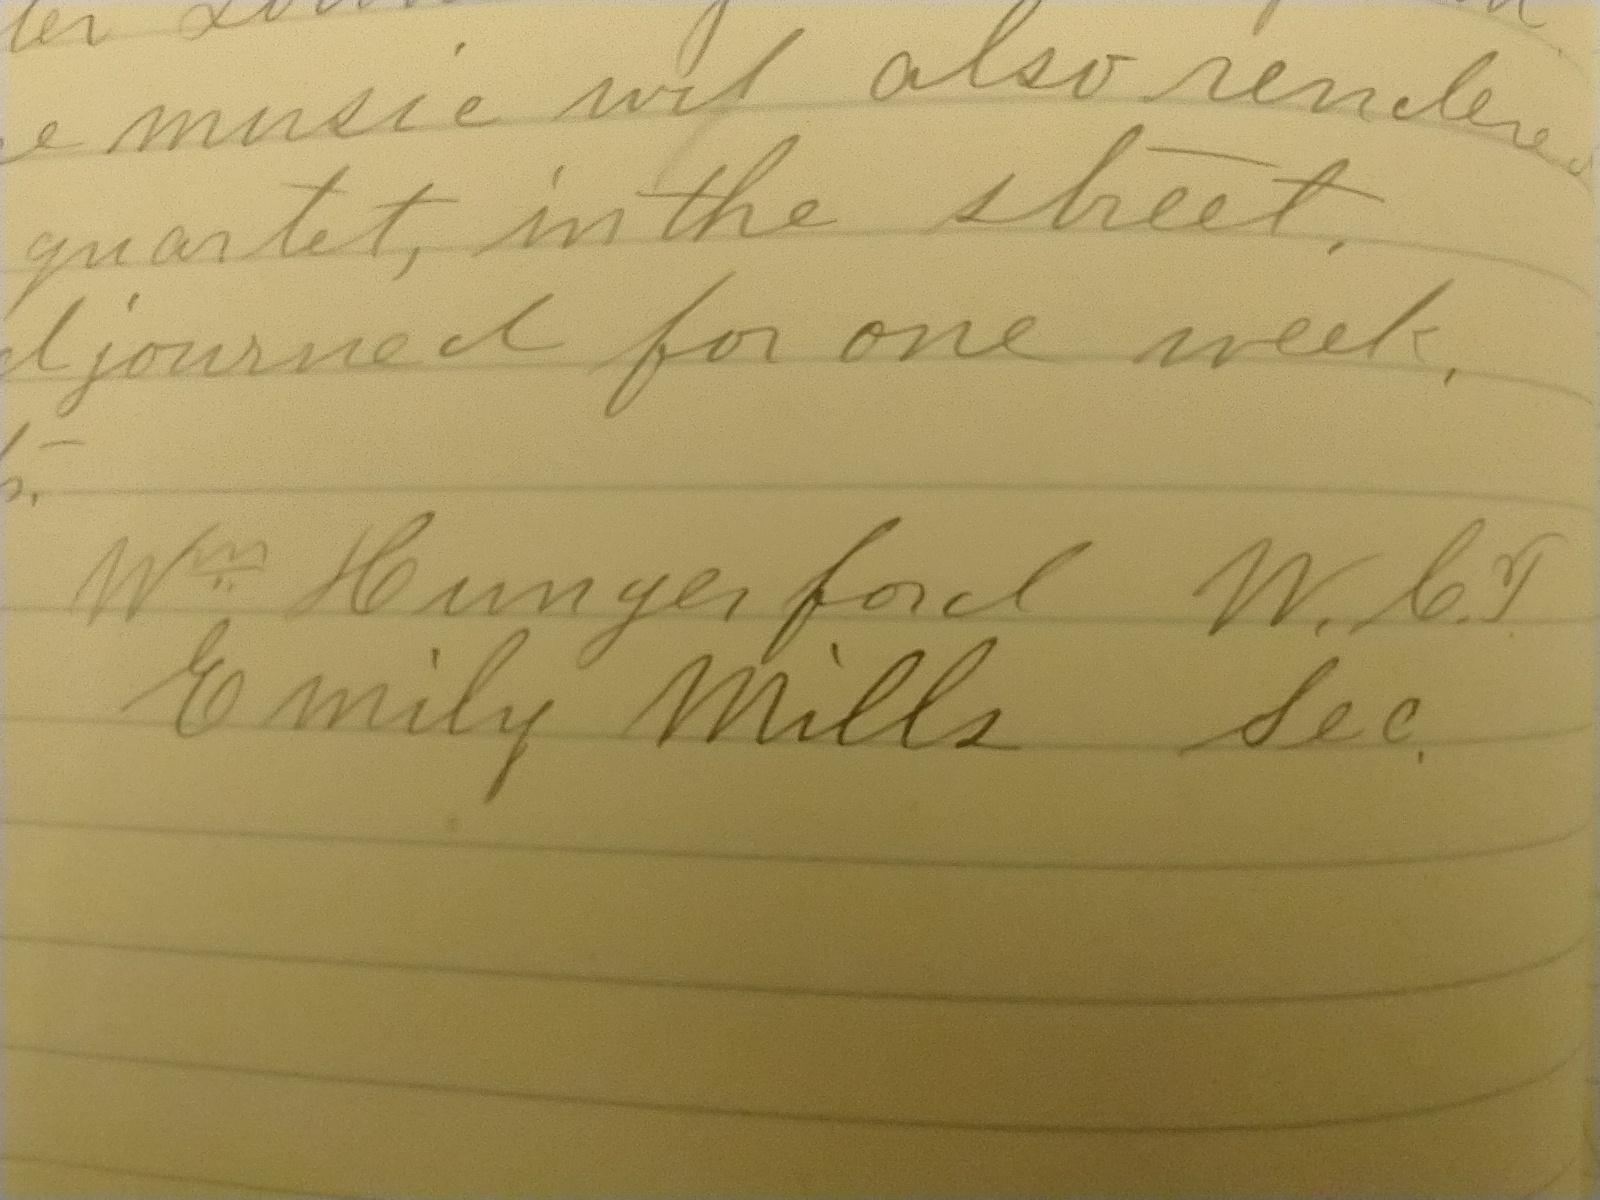 music wil also rendered
quartet, in the street.
djourned for one week.
Wm Hungerford W. C. T
Emily Mills Sec.